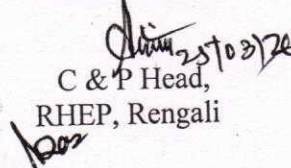 25/03/26
C & P Head,
RHEP, Rengali